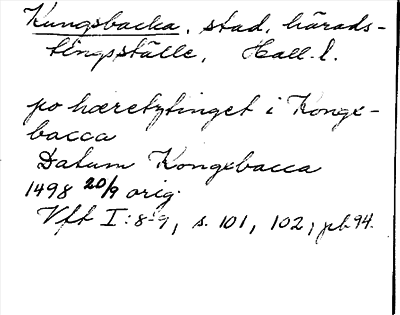 Kungsbacka, stad, härads-
tingsställe, Hall. l.
po hæretztinget i Kongx-
bacca
Datum Kongxbacca
1498 20/9 orig.
Vft I: 8-9, s. 101, 102; pb 94.